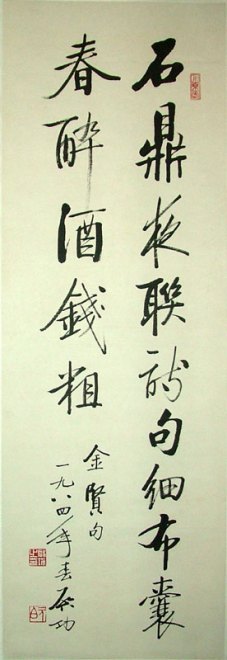 石鼎夜聯詩句細布囊
春醉酒錢粗
金賢句
一九八四年春启功